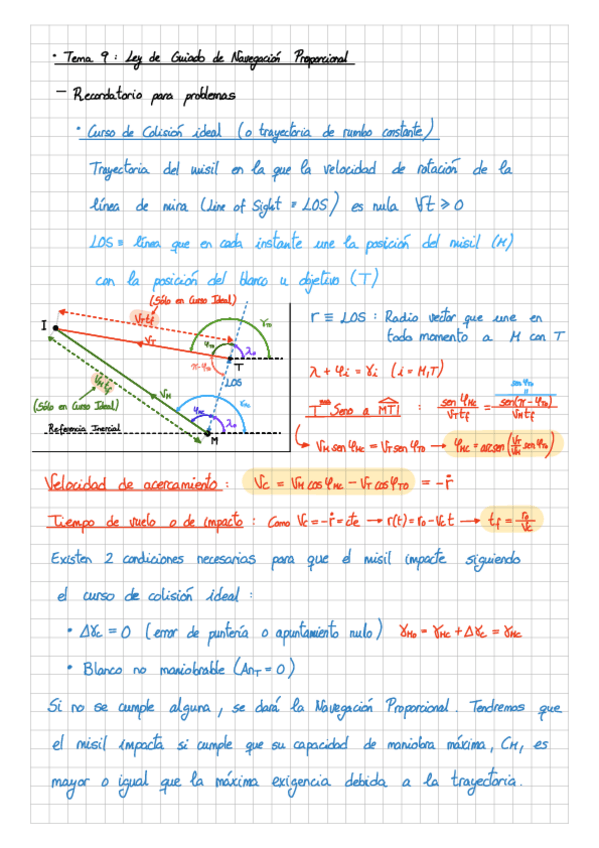 · Tema 9: Ley de Guiado de Navegación Proporcional
— Recordatorio para problemas
· Curso de Colisión ideal (o trayectoria de rumbo constante)
Trayectoria del misil en la que la velocidad de rotación de la
línea de mira (Line of Sight ≡ LOS) es nula ∀t ≥ 0
LOS ≡ línea que en cada instante une la posición del misil (M)
con la posición del blanco u objetivo (T)
(Sólo en Curso Ideal)
V_T t_f
I
V_T
φ_T0
γ_T0
λ_0
T
π-φ_T0
LOS
V_M t_f
(Sólo en Curso Ideal)
V_M
φ_MC
γ_MC
λ_0
Referencia Inercial
M
r ≡ LOS: Radio vector que une en
todo momento a M con T
λ + φ_i = γ_i (i = M,T)
T^ma Seno a MTI : sen φ_MC / V_T t_f = sen(π-φ_T0) / V_M t_f
sen φ_T0
V_M sen φ_MC = V_T sen φ_T0 → φ_MC = arcsen(V_T/V_M sen φ_T0)
Velocidad de acercamiento: V_C = V_M cos φ_MC - V_T cos φ_T0 = -ṙ
Tiempo de vuelo o de impacto: Como V_C = -ṙ = cte → r(t) = r_0 - V_C t → t_f = r_0/V_C
Existen 2 condiciones necesarias para que el misil impacte siguiendo
el curso de colisión ideal:
· Δγ_C = 0 (error de puntería o apuntamiento nulo) γ_M0 = γ_MC + Δγ_C = γ_MC
· Blanco no maniobrable (An_T = 0)
Si no se cumple alguna, se dará la Navegación Proporcional. Tendremos que
el misil impacta si cumple que su capacidad de maniobra máxima, C_M, es
mayor o igual que la máxima exigencia debida a la trayectoria.